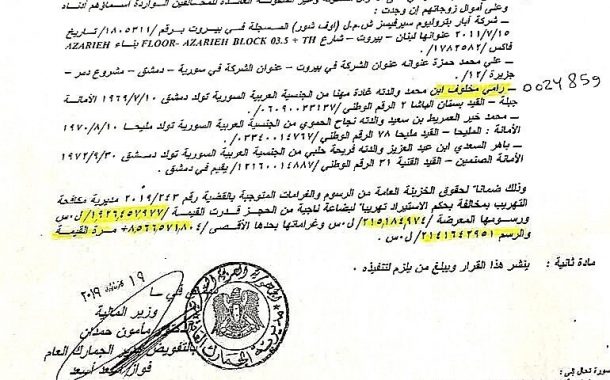 وعلى أموال زوجاتهم إن وجدت :
– شركة آبار بتروليوم سيرفيسز ش.م.ل (اوف شور) المسجلة في بيروت برقم /١٨٠٥٣١١/ تاريخ
٢٠١١/٧/١٥ عنوانها لبنان – بيروت – شارع AZARIEH بناء FLOOR- AZARIEH BLOCK 03.5 + TH
فاكس /١٧٨٢٥٨٢/ .
– علي محمد حمزة عنوانه عنوان الشركة في بيروت – عنوان الشركة في سورية – دمشق – مشروع دمر –
جزيرة /١٢/ .
– رامي مخلوف ابن محمد والدته غادة مهنا من الجنسية العربية السورية تولد دمشق ١٩٦٩/٧/١٠ الأمانة
جبلة – القيد بستان الباشا ٢ الرقم الوطني /٠٦٠٩٠٠٣٣١٣٧/ .
0024859
– محمد خير العمريط بن سعيد والدته نجاح الحموي من الجنسية العربية السورية تولد مليحا ١٩٧٠/٨/١٠
الأمانة : المليحا – القيد مليحا ٧٨ الرقم الوطني /٠٣٣٤٠٠١٤٧٦٧/ .
– باهر السعدي ابن عبد العزيز والدته فريحة حلبي من الجنسية العربية السورية تولد دمشق ١٩٧٢/٩/٣٠
الأمانة الصتمين – القيد القنية ٣١ الرقم الوطني /١٢١٦٠٠١٤٨٨٧/ يقيم في دمشق .
وذلك ضمانا لحقوق الخزينة العامة من الرسوم والغرامات المتوجبة بالقضية رقم ٢٠١٩/٢٤٣ مديرية مكافحة
التهريب بمخالفة بحكم الاستيراد تهريبا لبضاعة ناجية من الحجز قدرت القيمة /١٩٢٦٤٥٧٩٧٧/ ل.س
ورسومها المعرضة /٢١٥,١٨٤,٩٧٤/ ل.س وغراماتها بحدها الأقصى /٨٥٦٦٥٧١,٨٠٤+ مرة القيمة
والرسم ٢١٤١٦٤٢٩٥١/ ل.س .
مادة ثانية : ينشر هذا القرار ويبلغ من يلزم لتنفيذه .
١٩ ٢٠١٩
وزير المالية
مأمون حمدان
بالتفويض مدير الجمارك العام
فواز أسعد أسعد
صورة تحال إلى :